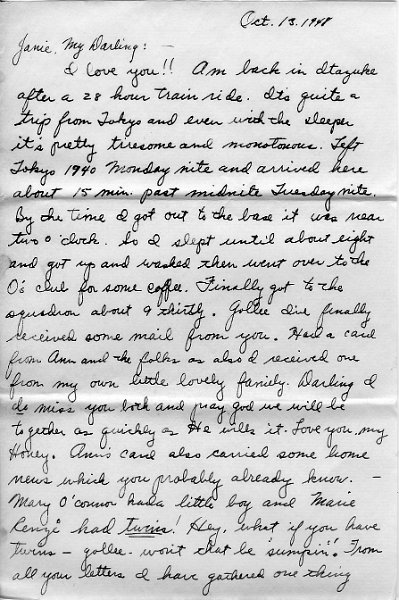 Oct. 13. 1948
Janie, My Darling: —
I love you!! Am back in Itazuke
after a 28 hour train ride. It's quite a
trip from Tokyo and even with the sleeper
it's pretty tiresome and monotonous. Left
Tokyo 1940 Monday nite and arrived here
about 15 min. past midnite Tuesday nite.
By the time I got out to the base it was near
two o'clock. So I slept until about eight
and got up and washed then went over to the
O's club for some coffee. Finally got to the
squadron about 9 thirty. Gollee I've finally
received some mail from you. Had a card
from Ann and the folks as also I received one
from my own little lovely family. Darling I
do miss you both and pray god we will be
together as quickly as He wills it. Love you, my
Honey. Ann's card also carried some home
news which you probably already know. —
Mary O'connor had a little boy and Marie
had twins! Hey, what if you have
twins — gollee. won't that be "sumpin"! From
all your letters I have gathered one thing